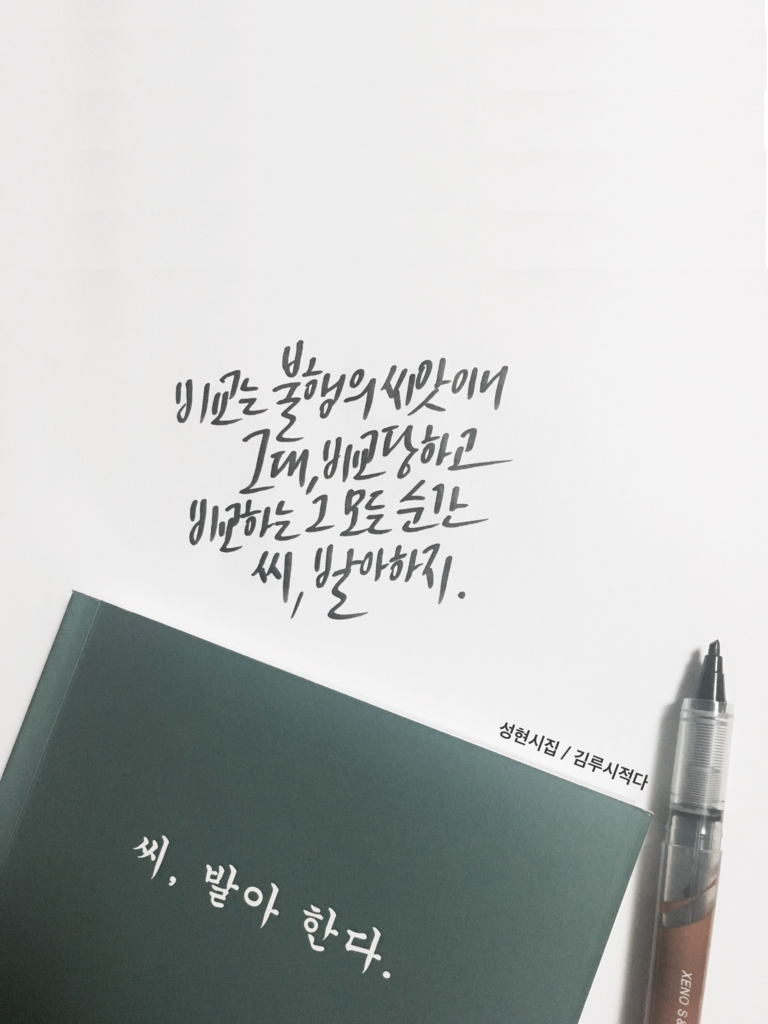 비교는 불행의 씨앗이니
그대, 비교당하고
비교하는 그 모든 순간
씨, 발아하지.
성현시집 / 김루시적다
씨, 발아 한다.
XENO S &